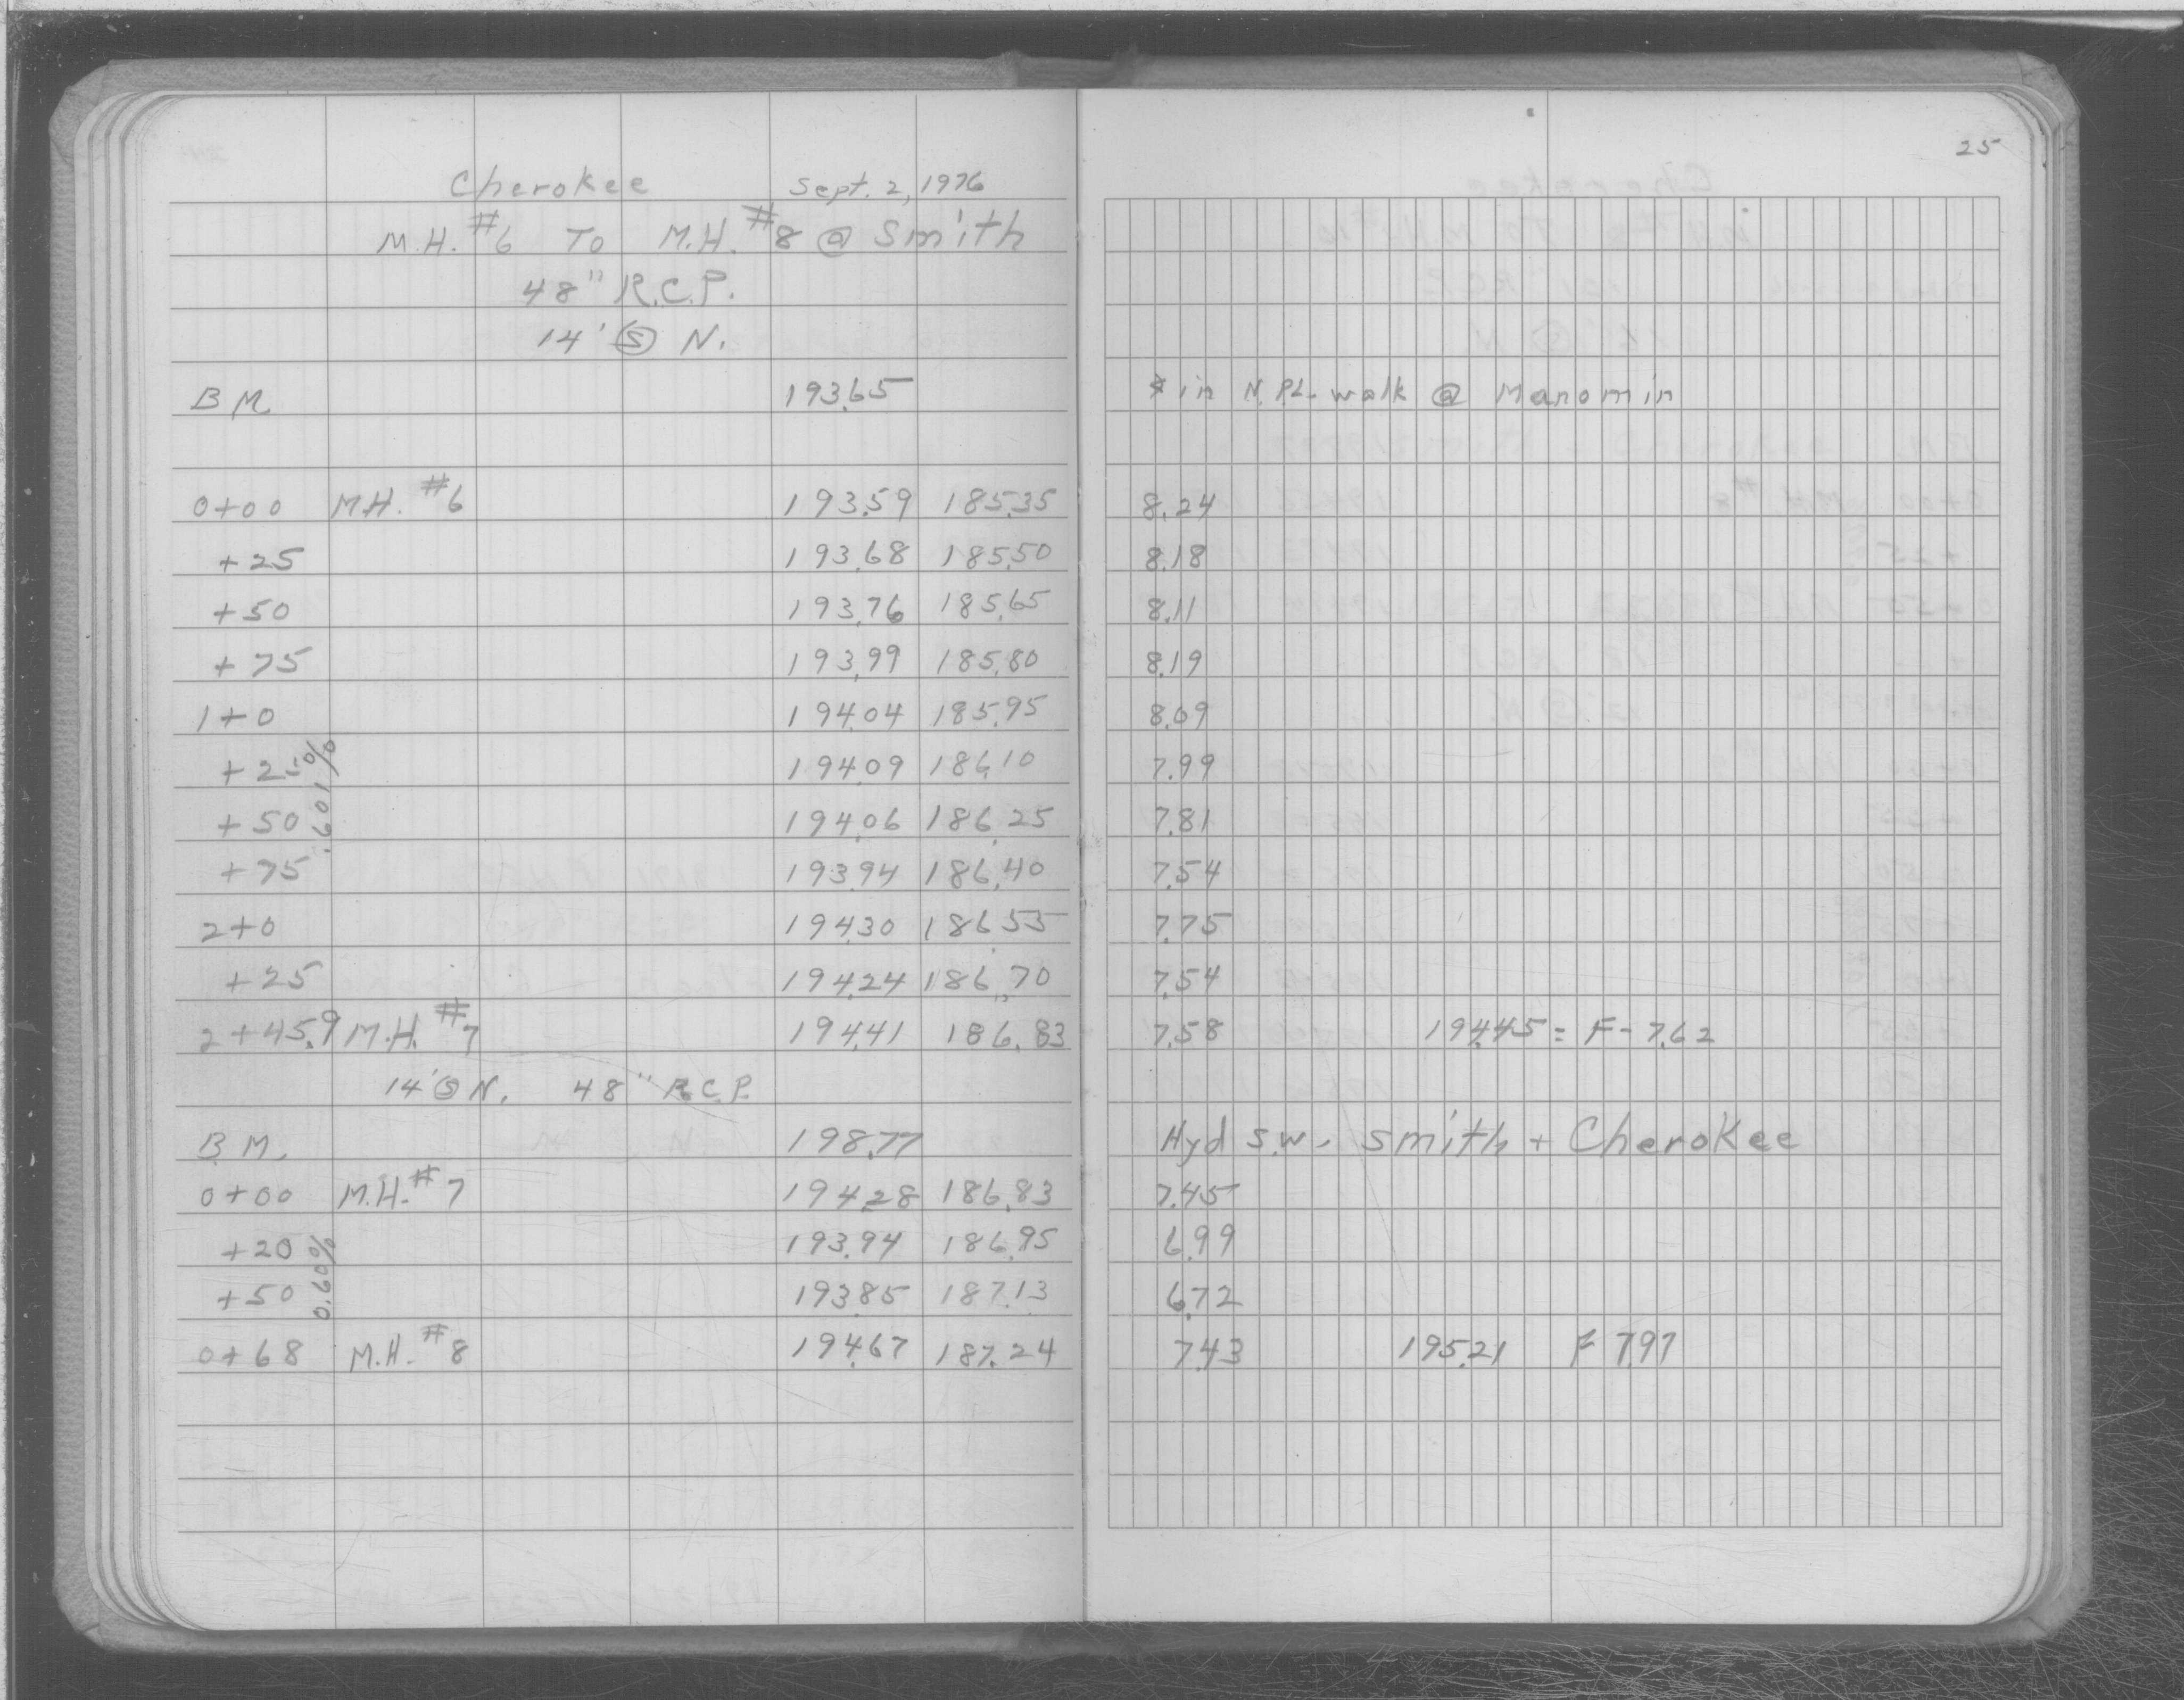 25
Cherokee Sept. 2, 1976
M.H. #6 To M.H. #8 @ Smith
48" R.C.P.
14' Ⓢ N.
B M. 193.65 in N. PL. walk @ Manomin
0+00 M.H. #6 193.59 185.35 8.24
+25 193.68 185.50 8.18
+50 193.76 185.65 8.11
+75 193.99 185.80 8.19
1+0 194.04 185.95 8.09
+25 194.09 186.10 7.99
.601%
+50 194.06 186.25 7.81
+75 193.94 186.40 7.54
2+0 194.30 186.55 7.75
+25 194.24 186.70 7.54
2+45.9 M.H. #7 194.41 186.83 7.58 194.45 = F- 7.62
14' Ⓢ N. 48" R.C.P.
B M. 198.77 Hyd S.W. Smith + Cherokee
0+00 M.H. #7 194.28 186.83 7.45
+20 193.94 186.95 6.99
0.60%
+50 193.85 187.13 6.72
0+68 M.H. #8 194.67 187.24 7.43 195.21 F 7.97